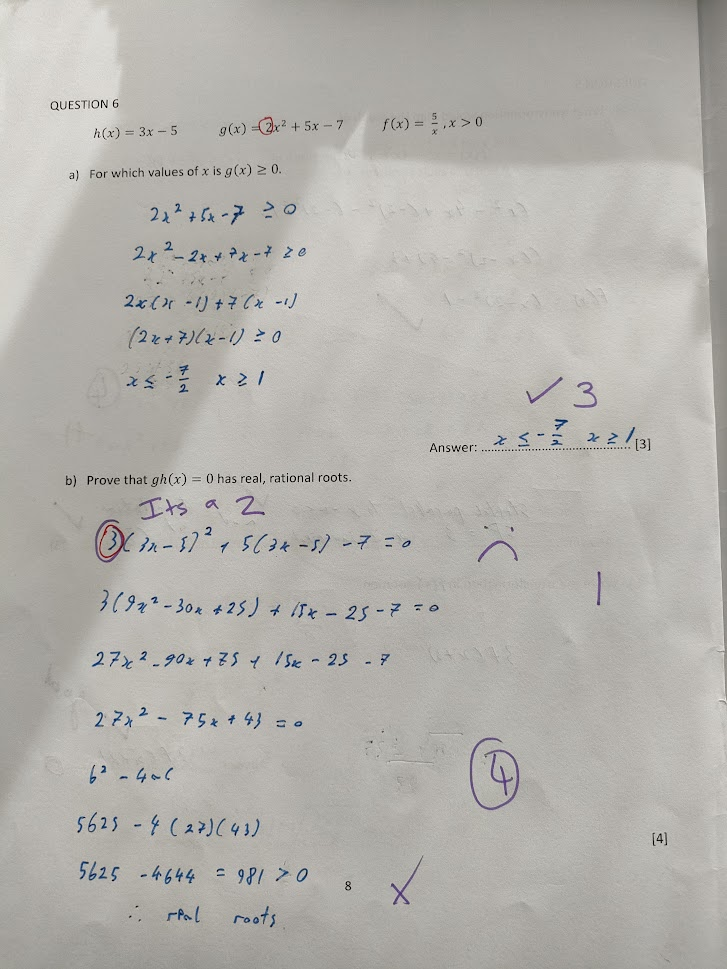 QUESTION 6
h(x) = 3x − 5 g(x) = 2x² + 5x − 7 f(x) = 5/x , x > 0
a) For which values of x is g(x) ≥ 0.
2x² + 5x - 7 ≥ 0
2x² - 2x + 7x - 7 ≥ 0
2x(x - 1) + 7(x - 1)
(2x + 7)(x - 1) ≥ 0
x ≤ - 7/2 x ≥ 1
✓ 3
Answer: x ≤ - 7/2 x ≥ 1 [3]
b) Prove that gh(x) = 0 has real, rational roots.
Its a 2
3(3x - 5)² + 5(3x - 5) - 7 = 0
1
3(9x² - 30x + 25) + 15x - 25 - 7 = 0
27x² - 90x + 75 + 15x - 25 - 7
27x² - 75x + 43 = 0
b² - 4ac
4
5625 - 4(27)(43)
[4]
5625 - 4644 = 981 > 0
8
∴ real roots